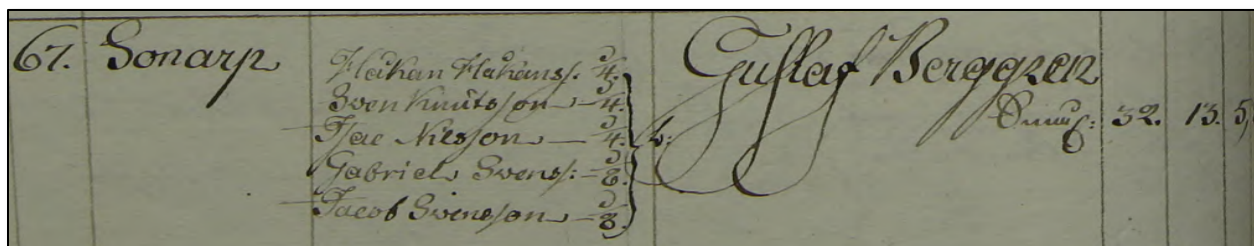 67. Sonarp
Håkan Håkanss:
Sven Knutsson
Isac Nilsson
Gabriel Svenss:
Jacob Svensson
Gustaf Berggren
32. 13. 5